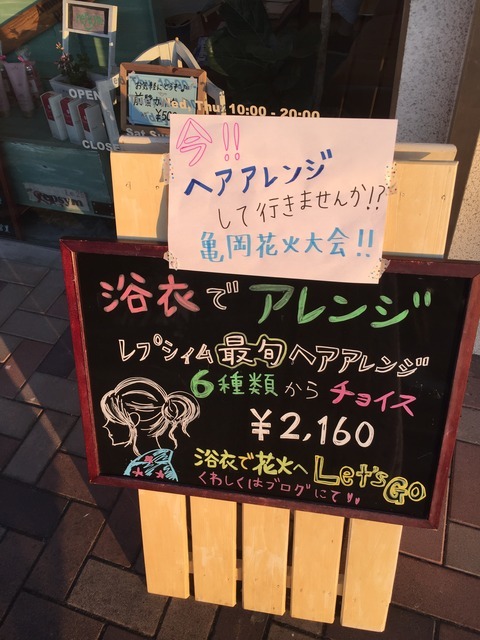 お気軽にどうぞ♪
前髪カット
¥500
OPEN
Wed, Thu 10:00 - 20:00
Sat Su
CLOSE
今!!
ヘアアレンジ
して行きませんか!?
亀岡花火大会!!
浴衣でアレンジ
レプシィム最旬ヘアアレンジ
6種類からチョイス
¥2,160
浴衣で花火へLet's GO
くわしくはブログにて